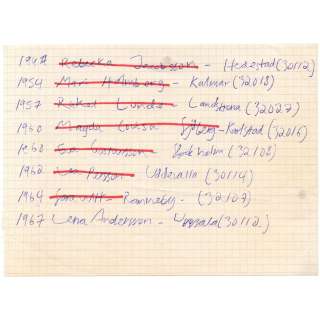 1949 Rebecka Jacobsson - Hedestad (30112)
1954 Mari Holmberg - Kalmar (32018)
1957 Rakel Lunde - Landskrona (32027)
1960 Magda Lovisa Sjöberg - Karlstad (32016)
1960 Liv Gustavsson Stockholm (32108)
1962 Lea Persson Uddevalla (30114)
1964 Sara Witt - Ronneby - (32107)
1967 Lena Andersson - Uppsala (30112)